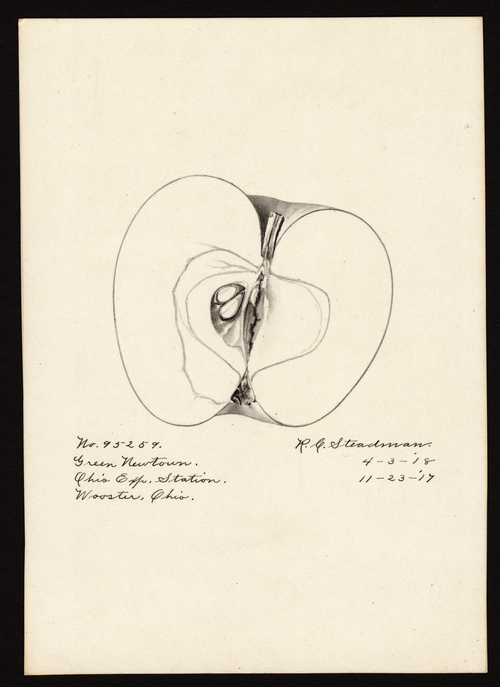 No. 95259.
Green Newtown.
Ohio Exp. Station.
Wooster, Ohio.
R. C. Steadman.
4-3-'18
11-23-'17